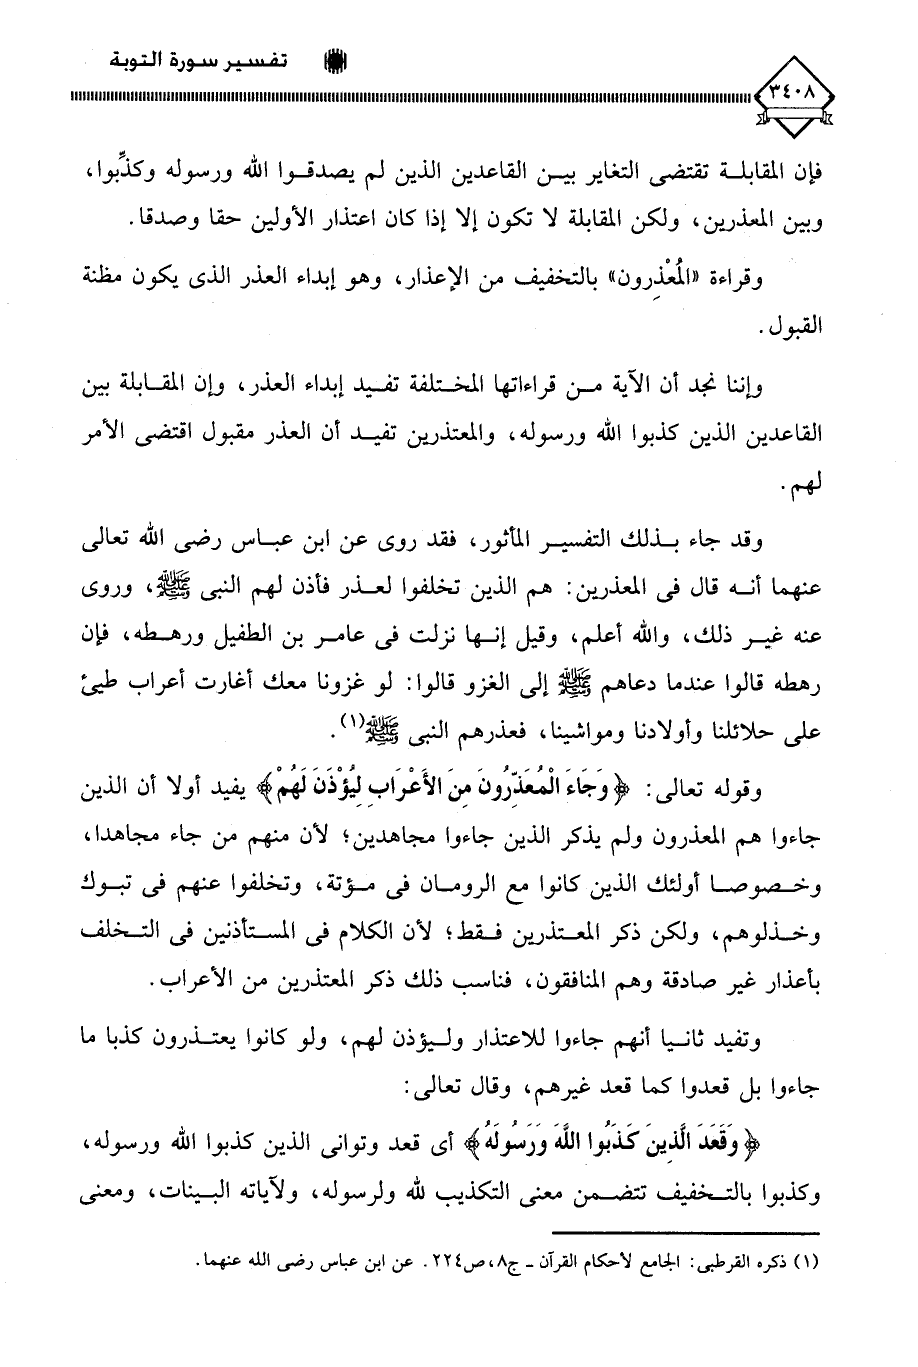 تفسير سورة التوبة
٣٤٠٨
فإن المقابلة تقتضى التغاير بين القاعدين الذين لم يصدقوا الله ورسوله وكذِّبوا،
وبين المعذرين، ولكن المقابلة لا تكون إلا إذا كان اعتذار الأولين حقا وصدقا.
وقراءة «المُعْذِرون» بالتخفيف من الإعذار، وهو إبداء العذر الذى يكون مظنة
القبول.
وإننا نجد أن الآية من قراءاتها المختلفة تفيد إبداء العذر، وإن المقابلة بين
القاعدين الذين كذبوا الله ورسوله، والمعتذرين تفيد أن العذر مقبول اقتضى الأمر
لهم.
وقد جاء بذلك التفسير المأثور، فقد روى عن ابن عباس رضى الله تعالى
عنهما أنه قال فى المعذرين: هم الذين تخلفوا لعذر فأذن لهم النبى ﷺ، وروى
عنه غير ذلك، والله أعلم، وقيل إنها نزلت فى عامر بن الطفيل ورهطه، فإن
رهطه قالوا عندما دعاهم ﷺ إلى الغزو قالوا: لو غزونا معك أغارت أعراب طيئ
على حلائلنا وأولادنا ومواشينا، فعذرهم النبى ﷺ(١).
وقوله تعالى: ﴿وَجَاءَ الْمُعَذِّرُونَ مِنَ الأَعْرَابِ لِيُؤْذَنَ لَهُمْ﴾ يفيد أولا أن الذين
جاءوا هم المعذرون ولم يذكر الذين جاءوا مجاهدين؛ لأن منهم من جاء مجاهدا،
وخصوصا أولئك الذين كانوا مع الرومان فى مؤتة، وتخلفوا عنهم فى تبوك
وخذلوهم، ولكن ذكر المعتذرين فقط؛ لأن الكلام فى المستأذنين فى التخلف
بأعذار غير صادقة وهم المنافقون، فناسب ذلك ذكر المعتذرين من الأعراب.
وتفيد ثانيا أنهم جاءوا للاعتذار وليؤذن لهم، ولو كانوا يعتذرون كذبا ما
جاءوا بل قعدوا كما قعد غيرهم، وقال تعالى:
﴿وَقَعَدَ الَّذِينَ كَذَبُوا اللَّهَ وَرَسُولَهُ﴾ أى قعد وتوانى الذين كذبوا الله ورسوله،
وكذبوا بالتخفيف تتضمن معنى التكذيب لله ولرسوله، ولآياته البينات، ومعنى
(١) ذكره القرطبى: الجامع لأحكام القرآن ـ ج٨، ص٢٢٤. عن ابن عباس رضى الله عنهما.